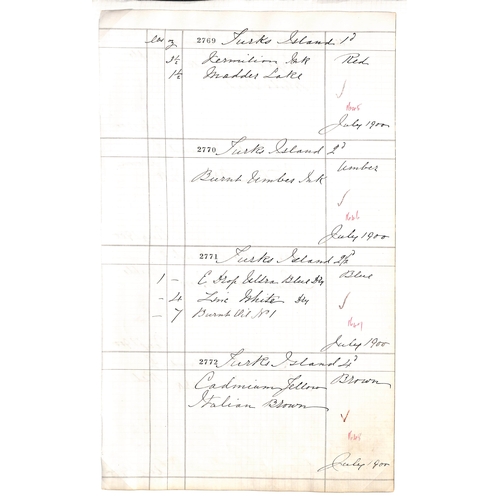 2769 Turks Island 1d
3½ Vermilion Ink Red
1½ Madder Lake
July 1900
2770 Turks Island 2d
Burnt Umber Ink Umber
July 1900
2771 Turks Island 2½d
1 - C Drop Ultra Blue Dry Blue
- 4 Zinc White Dry
- 7 Burnt Oil No 1
July 1900
2772 Turks Island 4d
Cadmium Yellow Brown
Italian Brown
July 1900